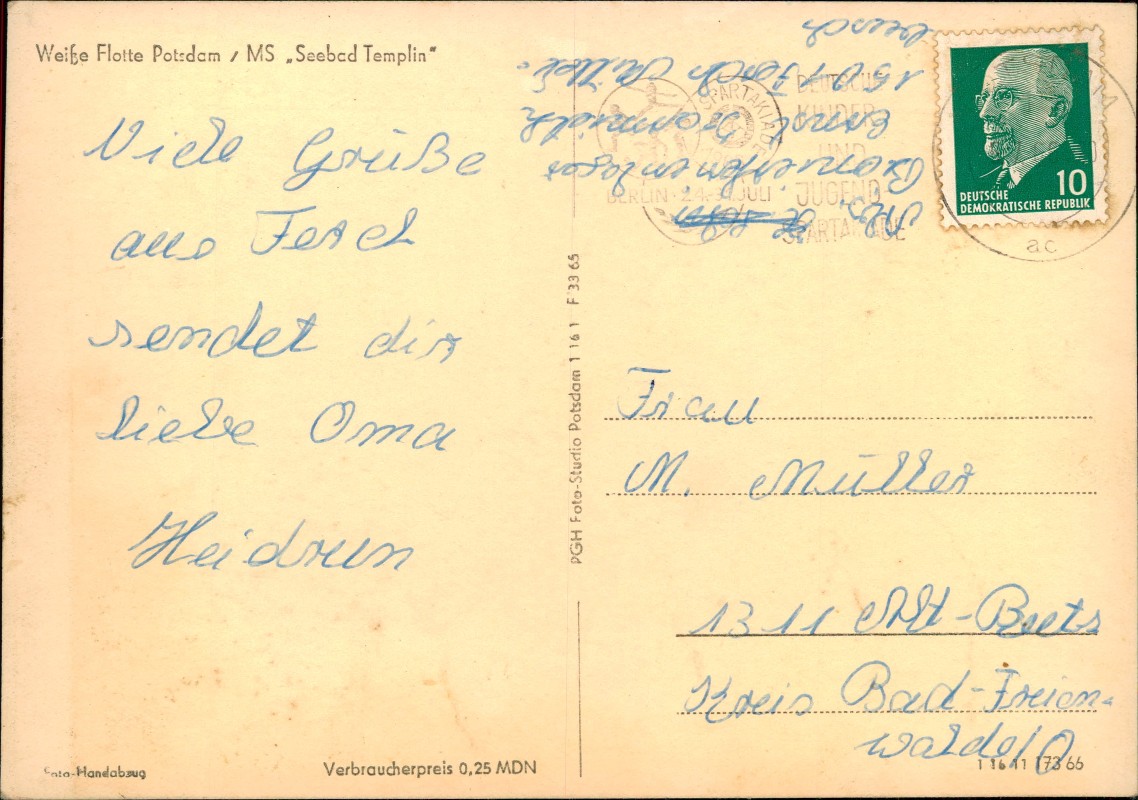 Weiße Flotte Potsdam / MS „Seebad Templin“
Viele Grüße
aus Ferch
sendet dir
liebe Oma
Heidrun
Foto-Handabzug
Verbraucherpreis 0,25 MDN
PGH Foto-Studio Potsdam 1 16 1 F 33 65
SPARTAKIADE
BERLIN · 24.-31. JULI
DEUTSCHE
KINDER
UND
JUGEND-
SPARTAKIADE
10
DEUTSCHE
DEMOKRATISCHE REPUBLIK
ac
Pionierferienlager
Ernst
1501 Ferch Mittel-
busch
Frau
M. Müller
1311 Alt-Reetz
Kreis Bad-Freien-
walde/O
1 16 11 173 66